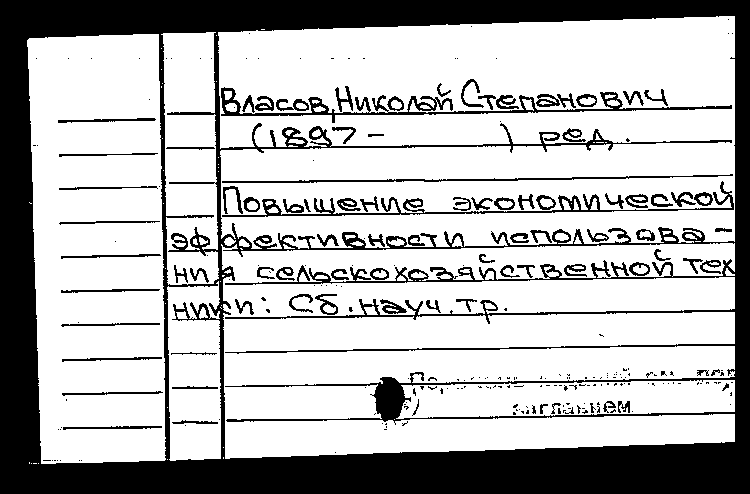 Власов, Николай Степанович
(1897 -         ) ред.
Повышение экономической
эффективности использова-
ния сельскохозяйственной тех
ники: Сб. науч. тр.
заглавием